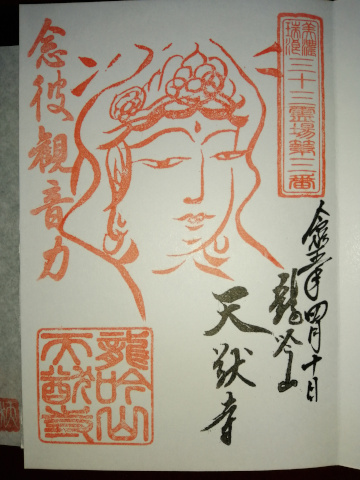 美濃
瑞浪
三十三霊場第三番
令和五年四月十日
龍吟山
天猷寺
念彼觀音力
龍吟山
天猷寺